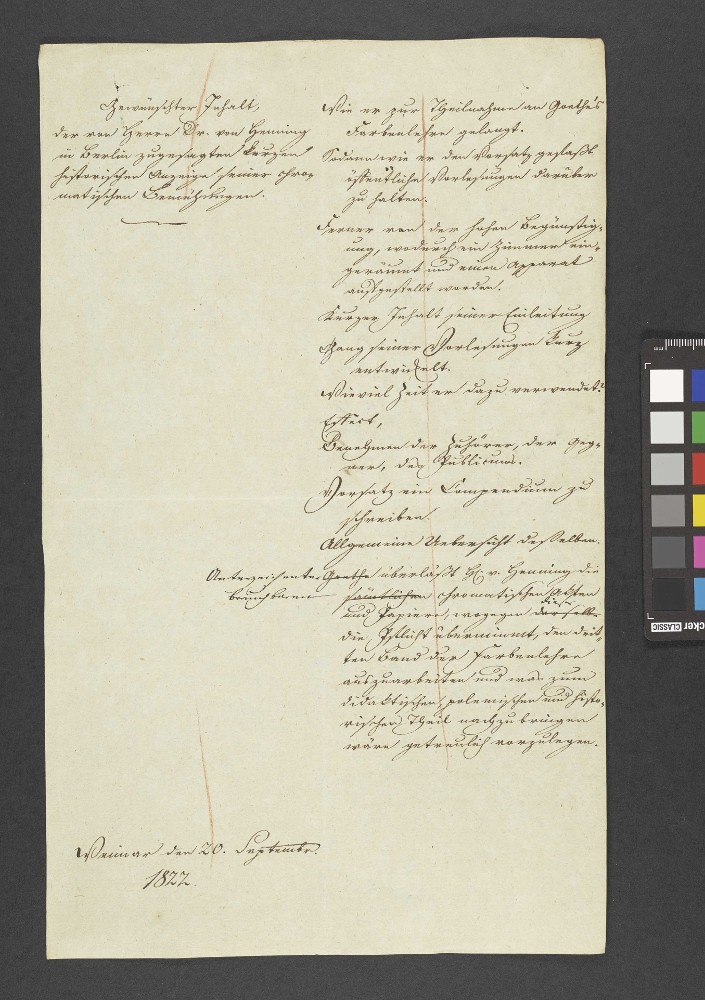 Gewünschter Inhalt,
der von Herrn Dr. von Henning
in Berlin zugesagten kurzen
historischen Anzeige seiner chro-
matischen Bemühungen.
Wie er zur Theilnahme an Goethe's
Farbenlehre gelangt.
Sodann wie er den Vorsatz gefaßt
öffentliche Vorlesungen darüber
zu halten.
Ferner von der hohen Begünstig-
ung, wodurch ein Zimmer ein-
geräumt und einen Apparat
aufgestellt worden.
Kurzer Inhalt seiner Einleitung
Gang seiner Vorlesungen kurz
entwickelt.
Wieviel Zeit er dazu verwendet?
Effect,
Benehmen der Zuhörer, der Geg-
ner, des Publicums.
Vorsatz ein Compendium zu
schreiben.
Allgemeine Uebersicht desselben.
Unterzeichneter Goethe überläßt H. v. Henning die
brauchbaren sämtlichen chromatischen Acten
und Papiere, wogegen dieser derselbe
die Pflicht übernimmt, den drit-
ten Band der Farbenlehre
auszuarbeiten und was zum
didaktischen, polemischen und histo-
rischen Theil nachzubringen
wäre getreulich vorzulegen.
Weimar den 20. Septembr.
1822.
CLASSIC